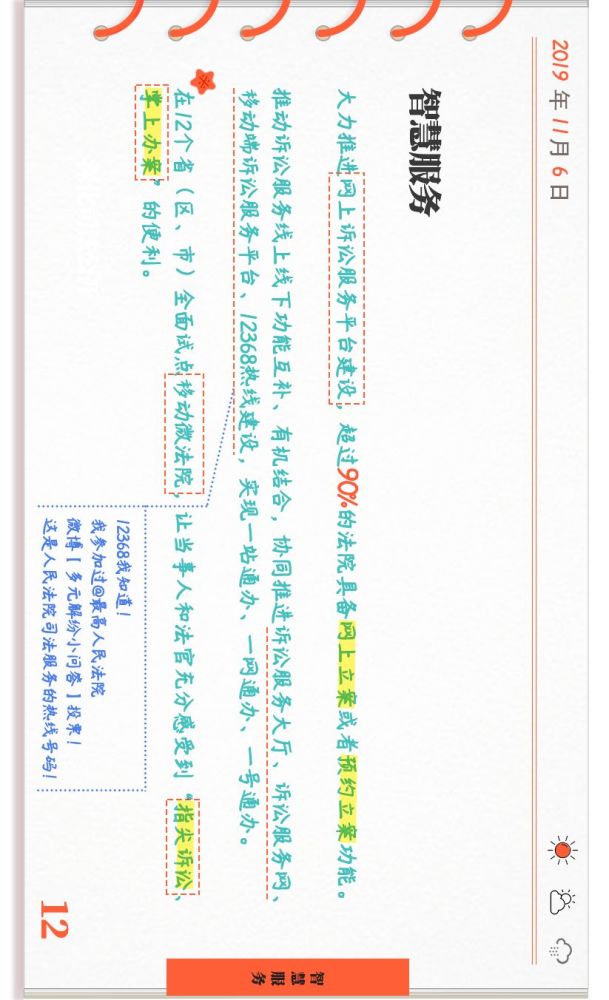 2019年11月6日
智慧服务
大力推进网上诉讼服务平台建设，超过90%的法院具备网上立案或者预约立案功能。
推动诉讼服务线上线下功能互补、有机结合，协同推进诉讼服务大厅、诉讼服务网、
移动端诉讼服务平台、12368热线建设，实现一站通办、一网通办、一号通办。
在12个省（区、市）全面试点移动微法院，让当事人和法官充分感受到“指尖诉讼、
掌上办案”的便利。
12368我知道！
我参加过@最高人民法院
微博【多元解纷小问答】投票！
这是人民法院司法服务的热线号码！
12
智慧
服务